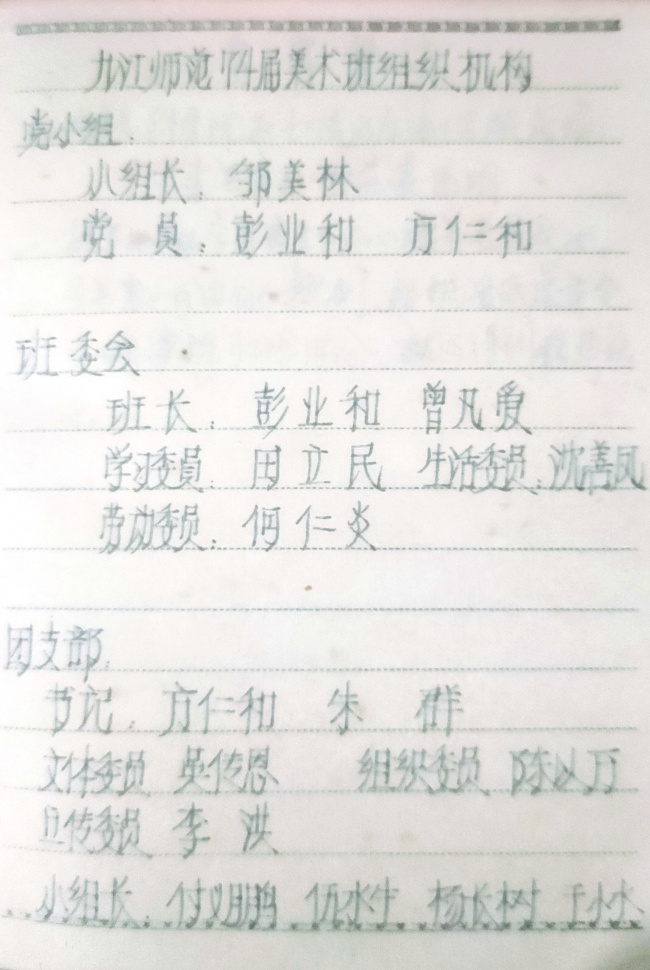 九江师范74届美术班组织机构
党小组：
小组长：邹美林
党 员：彭业和 方仁和
班委会
班长：彭业和 曾凡爱
学习委員：田立民 生活委員：沈善凤
劳动委員：何仁炎
团支部：
书记：方仁和 朱 群
文体委员 吴传恩 组织委员 陈以万
宣传委员 李 洪
小组长：付义鹏 伍水生 杨长树 王小水